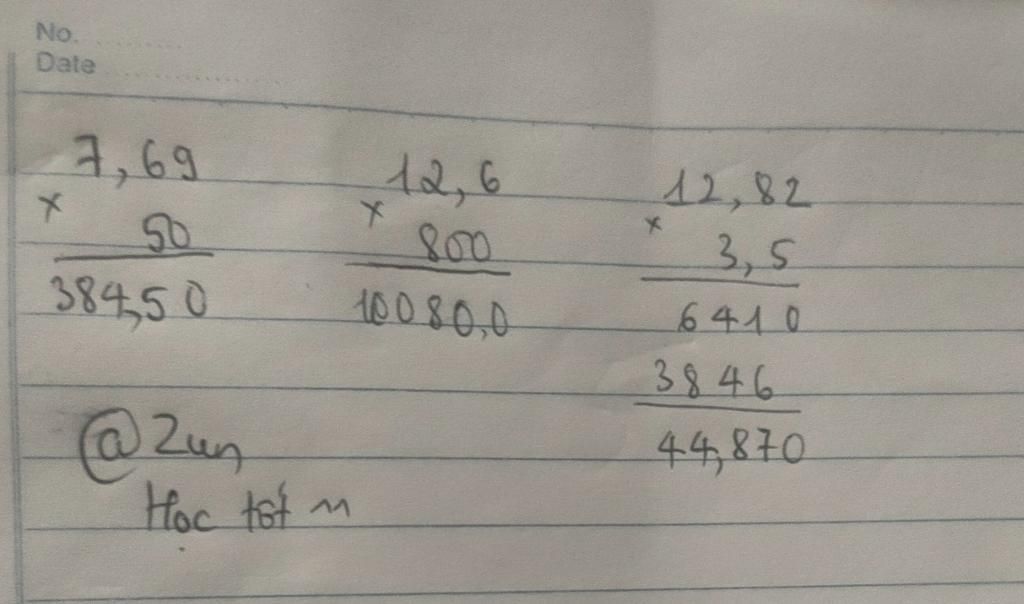 No.
Date
7,69
x
50
384,50
12,6
x
800
10080,0
12,82
x
3,5
6410
3846
44,870
@Zun
Học tốt ~